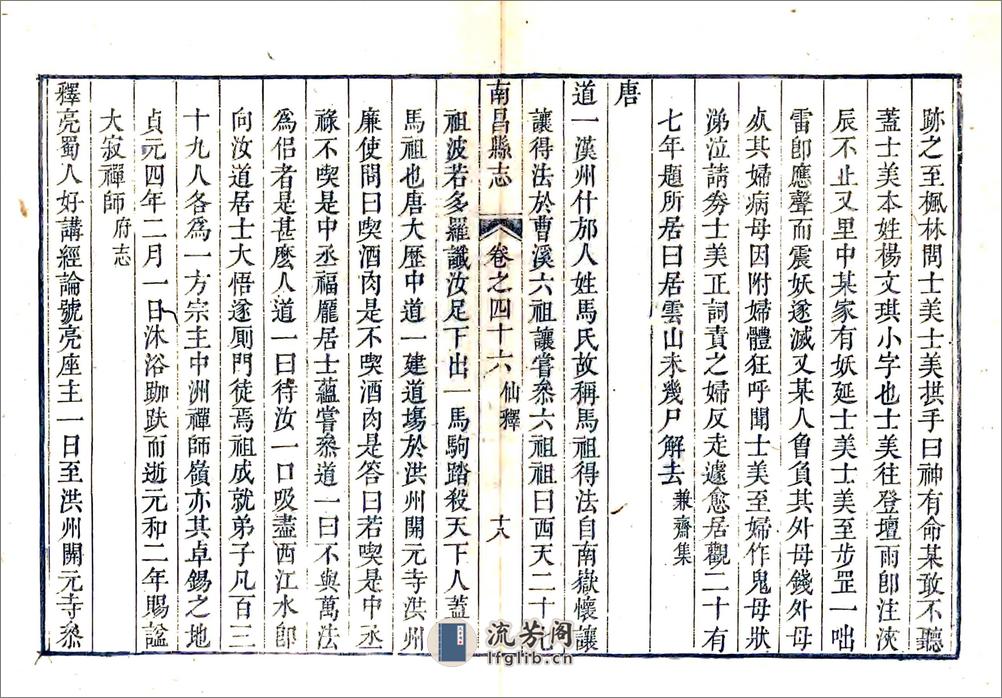 跡之至楓林問士美士美拱手曰神有命某敢不聽
蓋士美本姓楊文琪小字也士美往登壇雨卽注浹
辰不止又里中某家有妖延士美士美至步罡一咄
雷卽應聲而震妖遂滅又某人曾負其外母錢外母
𣦸其婦病母因附婦體狂呼聞士美至婦作鬼母狀
涕泣請旁士美正詞責之婦反走遽愈居觀二十有
七年題所居曰居雲山未幾尸解去 兼齋集
唐
道一漢州什邡人姓馬氏故稱馬祖得法自南嶽懷讓
讓得法於曹溪六祖讓嘗叅六祖祖曰西天二十九
南昌縣志 卷之四十六 仙釋 十八
祖波若多羅讖汝足下出一馬駒踏殺天下人蓋
馬祖也唐大歷中道一建道塲於洪州開元寺洪州
廉使問曰喫酒肉是不喫酒肉是答曰若喫是中丞
祿不喫是中丞福龎居士蘊嘗叅道一曰不與萬法
爲侶者是甚麽人道一曰待汝一口吸盡西江水卽
向汝道居士大悟遂厠門徒焉祖成就弟子凡百三
十九人各爲一方宗主中洲禪師嶺亦其卓錫之地
貞元四年二月一日沐浴跏趺而逝元和二年賜諡
大寂禪師 府志
釋亮蜀人好講經論號亮座主一日至洪州開元寺叅
流芳阁
lfglib.cn